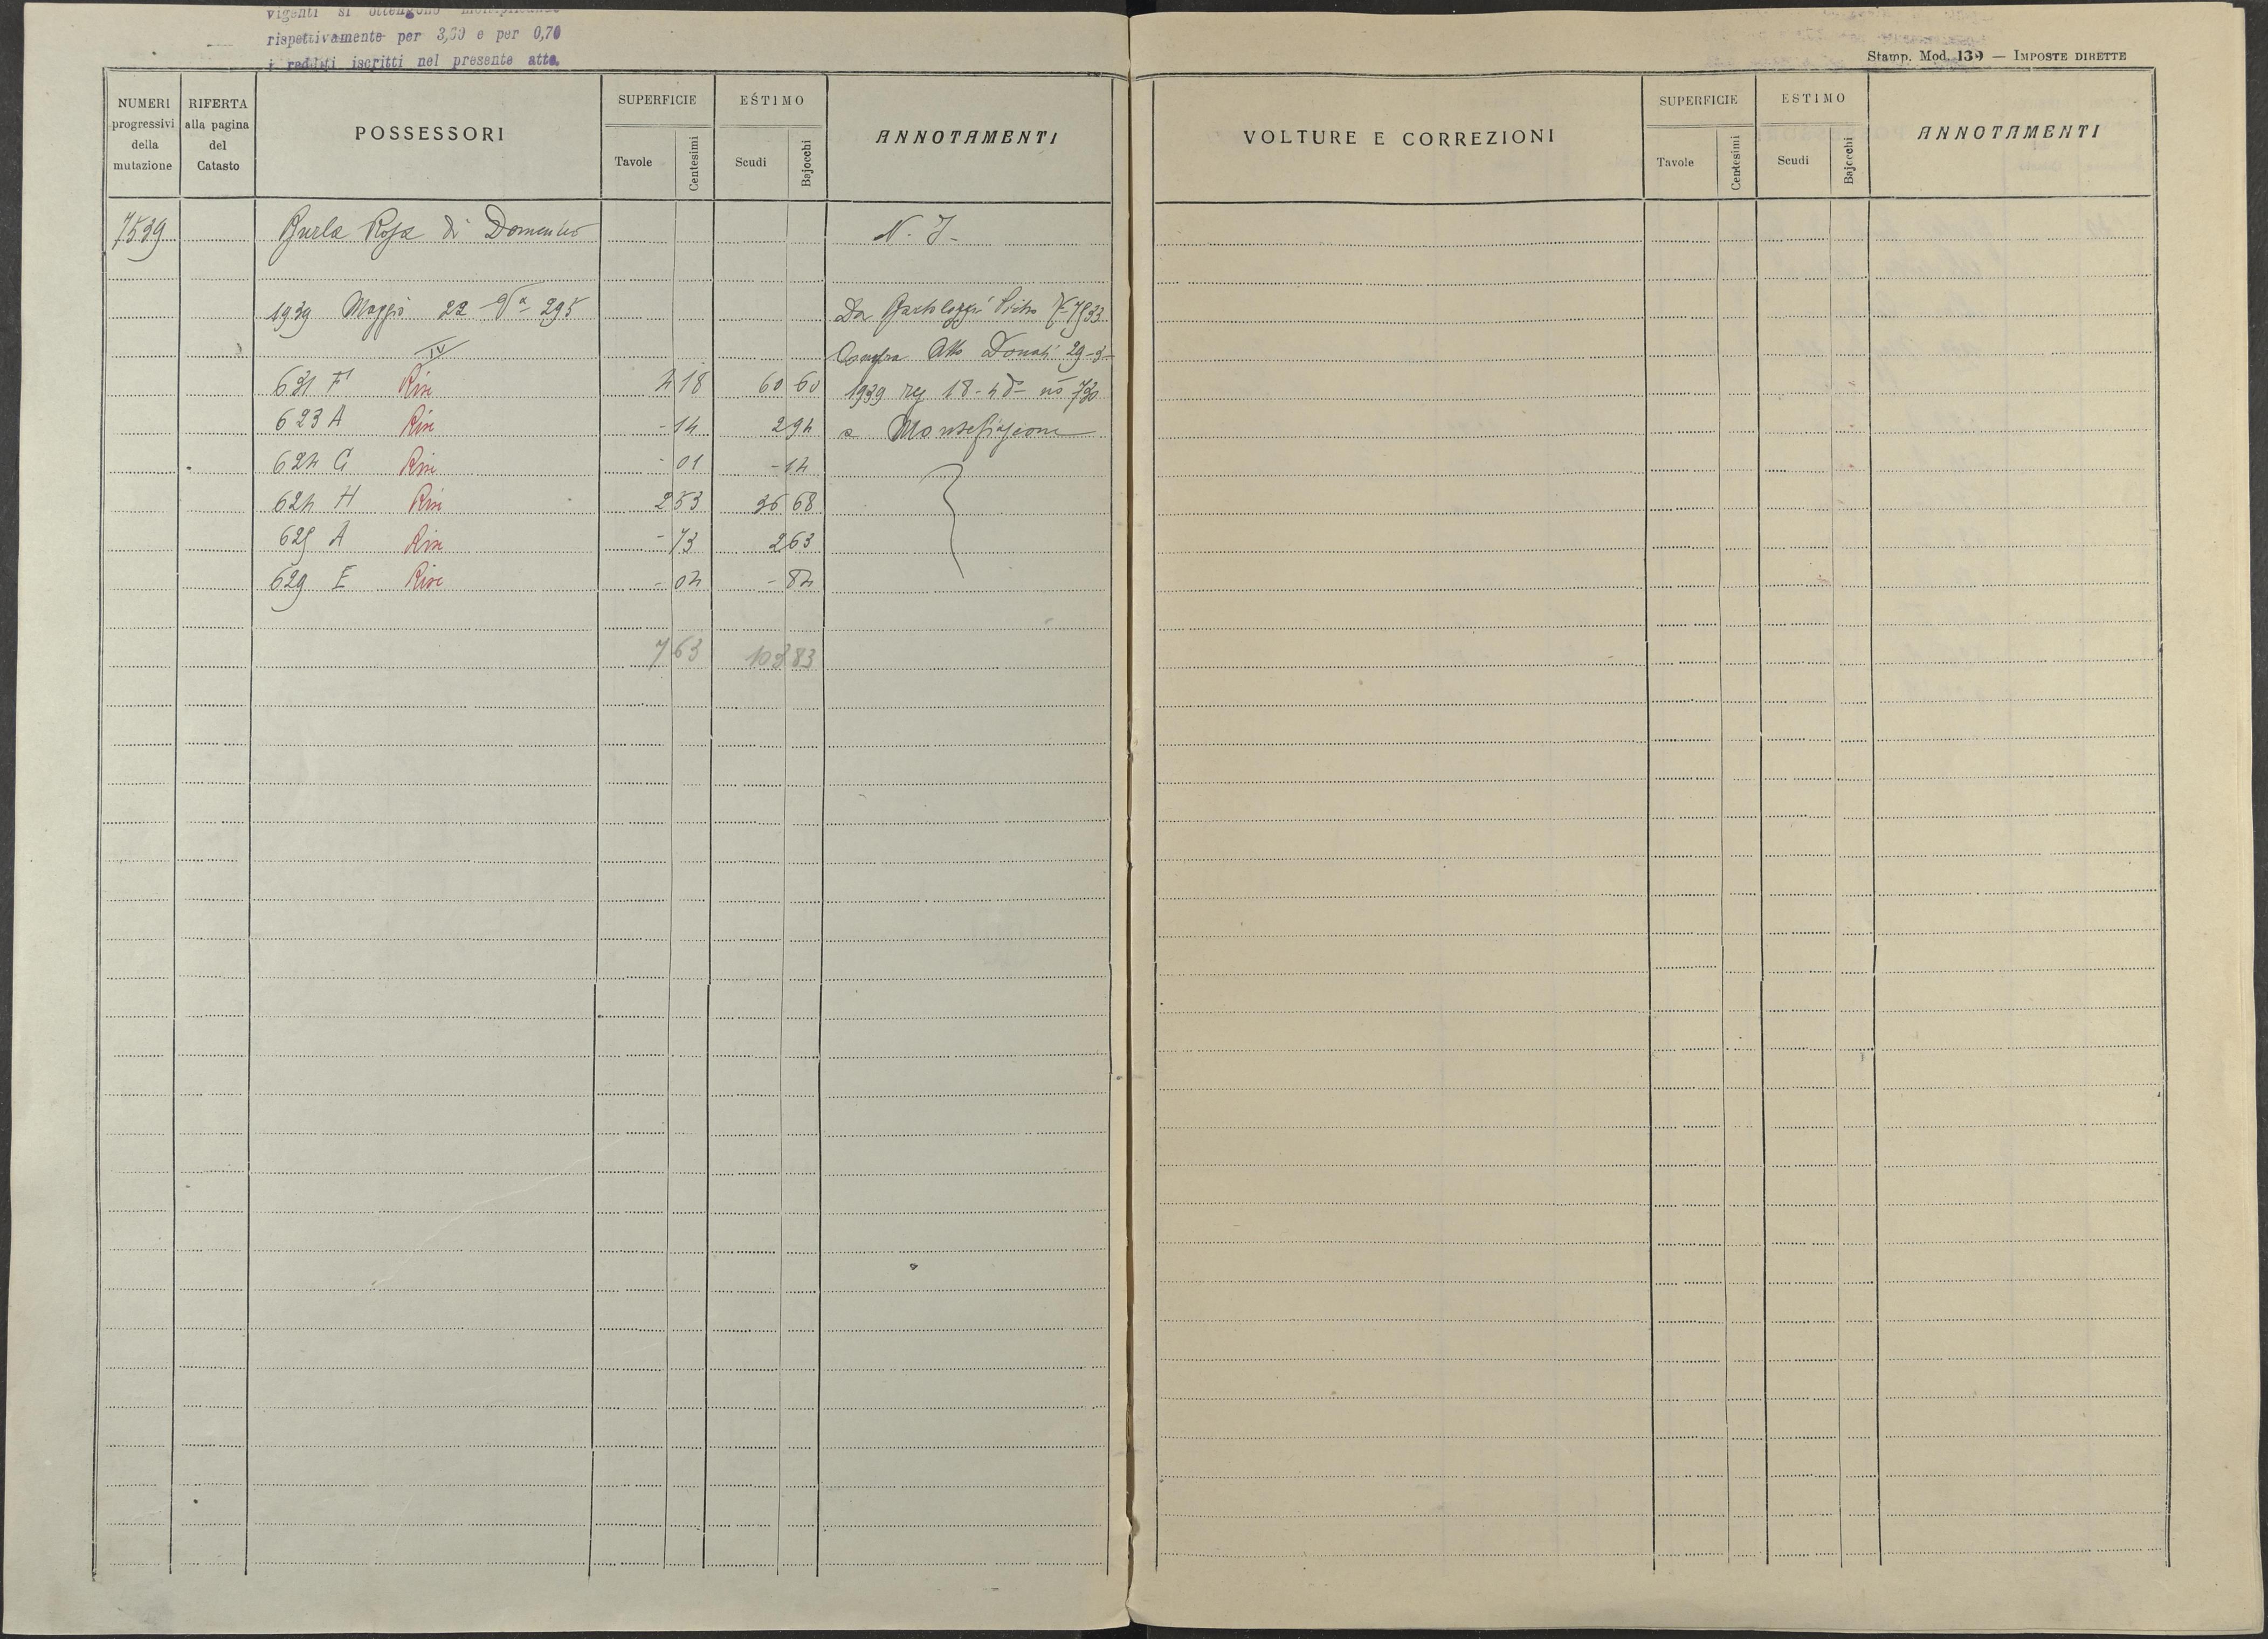 vigenti si ottengono moltiplicando
rispettivamente per 3,60 e per 0,70
i redditi iscritti nel presente atto.
Stamp. Mod. 139 — IMPOSTE DIRETTE
NUMERI progressivi della mutazione
RIFERTA alla pagina del Catasto
POSSESSORI
SUPERFICIE
Tavole
Centesimi
ESTIMO
Scudi
Bajocchi
ANNOTAMENTI
VOLTURE E CORREZIONI
SUPERFICIE
Tavole
Centesimi
ESTIMO
Scudi
Bajocchi
ANNOTAMENTI
7539 Burla Rosa di Domenico N. I.
1939 Maggio 22 Va 295 Da
IV Compra Atto Donati 29-3-
631 F Rise 4 18 60 60 1939 reg 18-4 do no 730
623 A Rise - 14 2 94 a Montefiascone
624 G Rise - 01 - 14
624 H Rise 2 53 36 68
625 A Rise - 73 2 63
629 E Rise - 04 - 84
7 63 103 83